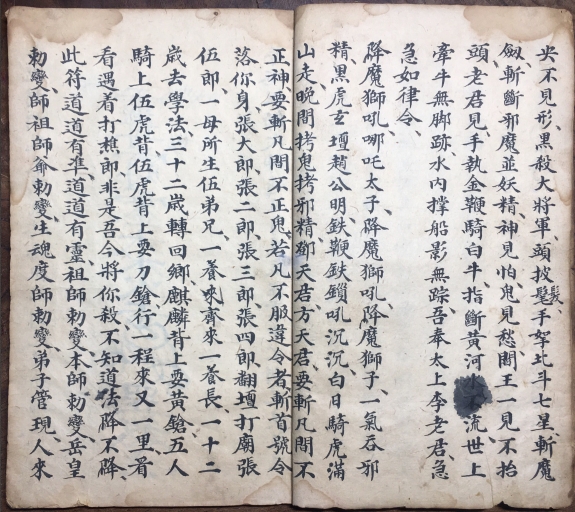 央不見形、黑殺大將軍、頭披髮髮手架北斗七星、斬魔
劍、斬斷邪魔並妖精、神見怕、鬼見愁、閻王一見不抬
頭、老君見手執金鞭騎白牛、指斷黃河水不流、世上
牽牛無脚跡、水內撑船影無踪、吾奉太上李老君、急
急如律令、
降魔獅吼哪吒太子、降魔獅吼、降魔獅子、一氣吞邪
精、黑虎玄壇趙公明、鉄鞭鉄鎖吼沉沉、白日騎虎滿
山走、晚間拷鬼拷邪精、鄧天君、方天君、要斬凡間不
正神、要斬凡間不正鬼、若凡不服違令者、斬首號令
落你身、張大郎、張二郎、張三郎、張四郎、翻壇打廟張
伍郎、一母所生伍弟兄、一養來齊來一養長、一十二
歲去學法、三十二歲轉回鄉、麒麟背上耍黃鎗、五人
騎上伍虎背、伍虎背上耍刀鎗、行一程來又一里、看
看遇着打樵郎、非是吾今將你殺、不知道法降不降、
此符道道有準、道道有靈、祖師勅變、本師勅變、岳皇
勅變、師祖師爺勅變、生魂度師勅變、弟子管現人來